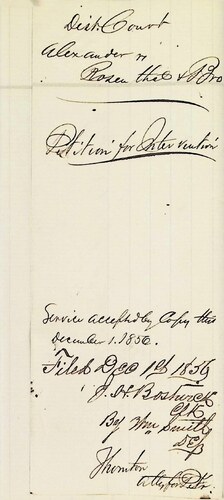 Dist Court
Alexander vs
Rosenthal & Bro
Petition for Intervention
Service accepted by Copy this
December 1. 1856.
Filed Dec 1st 1856
J. H. Bostwick
Clk
By Wm Smith
DCp
Thornton
atty for Petr